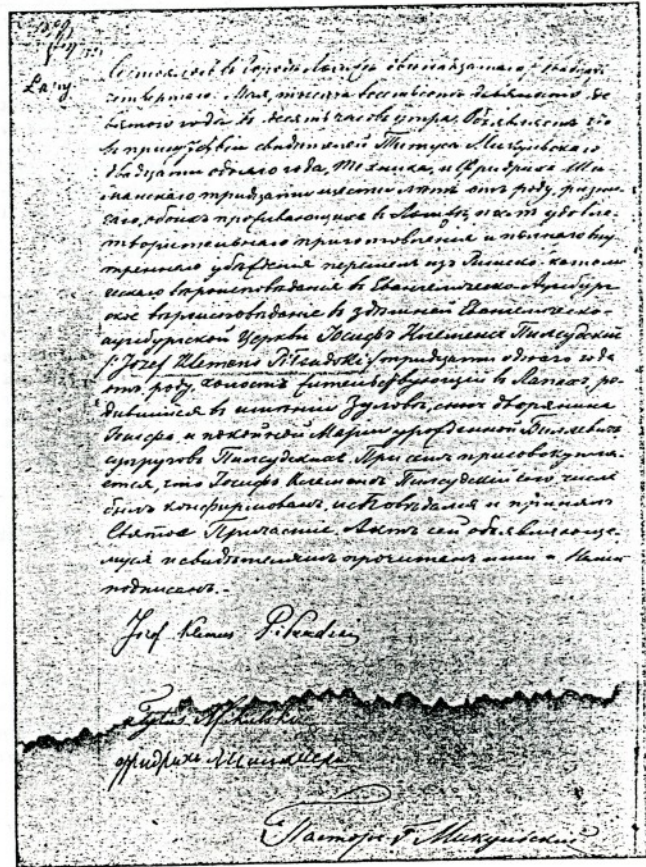 Łapy
Состоялось въ городѣ Ломжѣ двѣнадцатаго / двадцать
четвертаго / Мая, тысяча восемьсотъ девяносто де-
вятого года въ десять часовъ утра. Объявляется что
въ присутствіи свидѣтелей Титуса Микульскаго
двадцати одного года, техника, и Фридриха
тридцати шести лѣтъ отъ роду,
обоихъ проживающихъ въ Ломжѣ, послѣ удовле-
творительнаго приготовленія и полнаго вну-
тренняго убѣжденія перешелъ изъ Римско-католи-
ческаго вѣроисповѣданія въ Евангелическо-Аугсбург-
ское вѣроисповѣданіе въ здѣшней Евангелическо-
аугсбургской Церкви Іосифъ Клеменсъ Пилсудскій
/: Józef Klemens Piłsudski :/ тридцати одного года
отъ роду, холостъ, жительствующій въ Лапахъ, ро-
дившійся въ имѣніи Зуловъ, сынъ дворянина
Іосифа и покойной Маріи урожденной Биллевичъ
супруговъ Пилсудскихъ. При семъ присовокупля-
ется, что Іосифъ Клеменсъ Пилсудскій сего числа
былъ конфирмованъ, исповѣдался и принялъ
Святое Причастіе. Актъ сей объявляюще-
муся и свидѣтелямъ прочитанъ ими и Нами
подписанъ.-
Józef Klemens Piłsudski
Tytus Mikulski
Фридрихъ
Пасторъ Микульскій